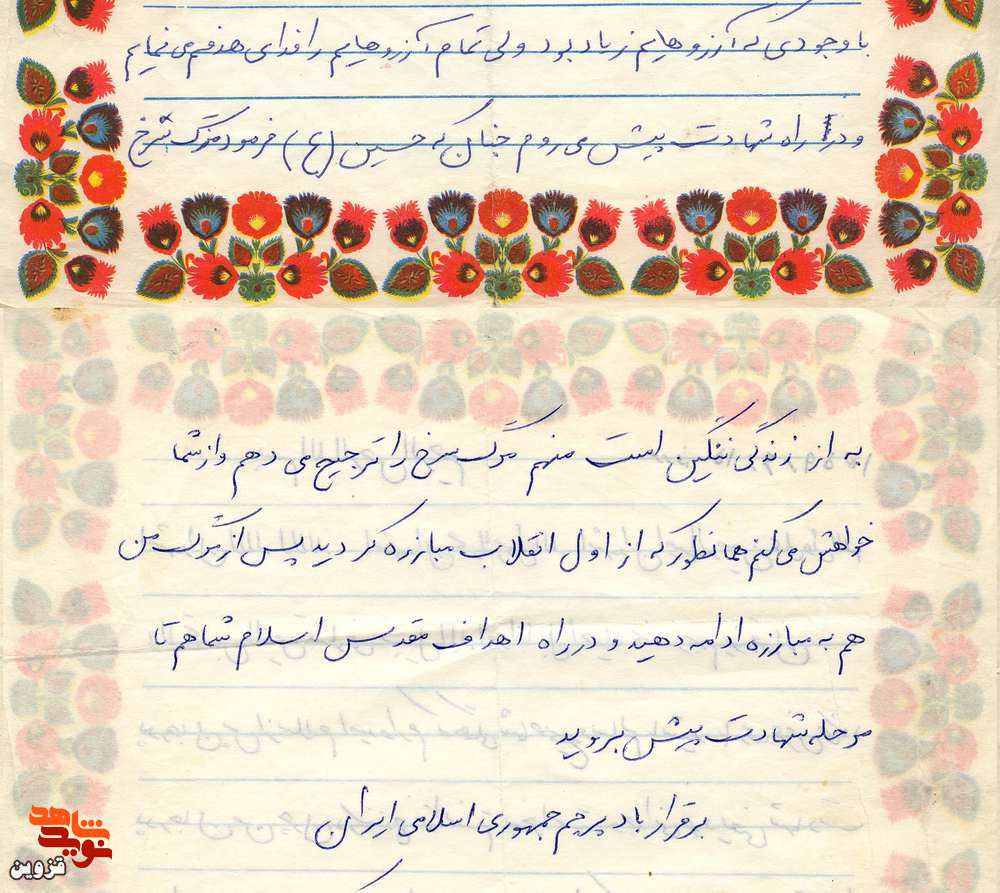 با وجودی که آرزوهایم زیاد بود ولی تمام آرزوهایم را فدای هدفم می نمایم
و در راه شهادت پیش می روم چنان که حسین (ع) فرمود مرگ سرخ
به از زندگی ننگین است منهم مرگ سرخ را ترجیح می دهم و از شما
خواهش می کنم همانطور که از اول انقلاب مبارزه کردید پس از مرگ من
هم به مبارزه ادامه دهید و در راه اهداف مقدس اسلام شما هم تا
مرحله شهادت پیش بروید
برقرار باد پرچم جمهوری اسلامی ایران
نوید شاهد
قزوین